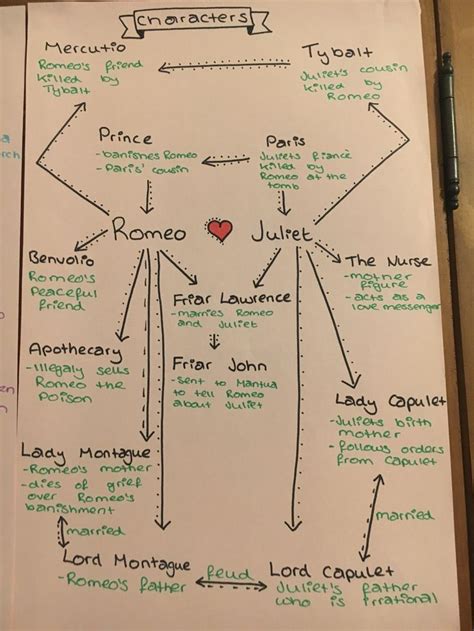 characters
Mercutio
Romeo's friend
killed by
Tybalt
Tybalt
Juliet's cousin
killed by
Romeo
Prince
-banishes Romeo
-Paris' cousin
Paris
Juliet's fiancé
killed by
Romeo at the
tomb
Romeo
Juliet
Benvolio
Romeo's
peaceful
friend
The Nurse
-mother
figure
-acts as a
love messenger
Friar Lawrence
-marries Romeo
and Juliet
Apothecary
-illegally sells
Romeo the
poison
Friar John
-sent to Mantua
to tell Romeo
about Juliet
Lady Capulet
-Juliets birth
mother
-follows orders
from Capulet
Lady Montague
-Romeo's mother
-dies of grief
over Romeo's
banishment
married
married
Lord Montague
-Romeo's father
feud
Lord Capulet
Juliet's father
who is irrational